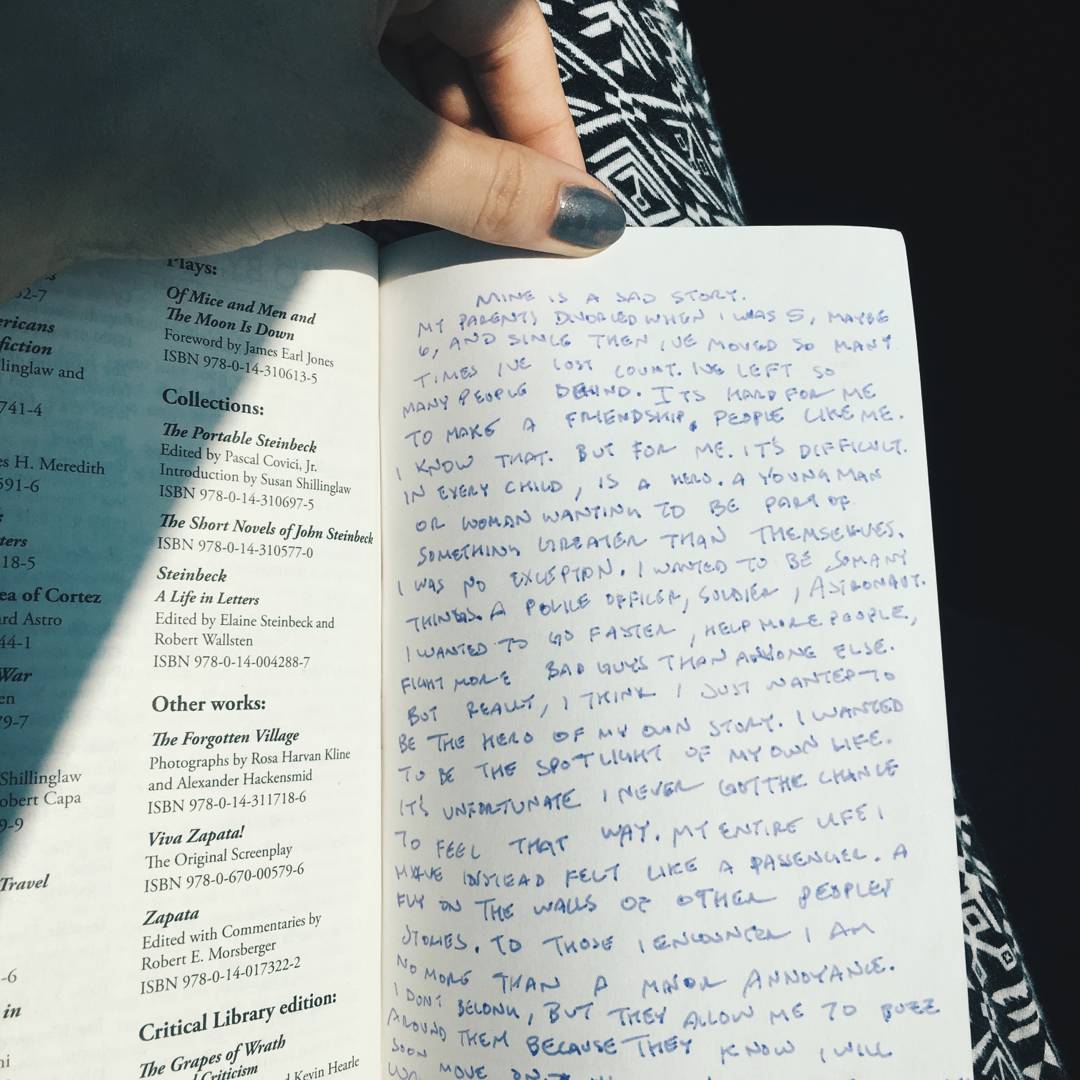 32-7
ericans
fiction
linglaw and
741-4
es H. Meredith
591-6
ters
18-5
ea of Cortez
ard Astro
44-1
War
en
79-7
Shillinglaw
obert Capa
9-9
Travel
-6
in
Plays:
Of Mice and Men and
The Moon Is Down
Foreword by James Earl Jones
ISBN 978-0-14-310613-5
Collections:
The Portable Steinbeck
Edited by Pascal Covici, Jr.
Introduction by Susan Shillinglaw
ISBN 978-0-14-310697-5
The Short Novels of John Steinbeck
ISBN 978-0-14-310577-0
Steinbeck
A Life in Letters
Edited by Elaine Steinbeck and
Robert Wallsten
ISBN 978-0-14-004288-7
Other works:
The Forgotten Village
Photographs by Rosa Harvan Kline
and Alexander Hackensmid
ISBN 978-0-14-311718-6
Viva Zapata!
The Original Screenplay
ISBN 978-0-670-00579-6
Zapata
Edited with Commentaries by
Robert E. Morsberger
ISBN 978-0-14-017322-2
Critical Library edition:
The Grapes of Wrath
Criticism
Kevin Hearle
MINE IS A SAD STORY.
MY PARENTS DIVORCED WHEN I WAS 5, MAYBE
6, AND SINCE THEN I'VE MOVED SO MANY
TIMES I'VE LOST COUNT. I'VE LEFT SO
MANY PEOPLE BEHIND. ITS HARD FOR ME
TO MAKE A FRIENDSHIP, PEOPLE LIKE ME.
I KNOW THAT. BUT FOR ME. IT'S DIFFICULT.
IN EVERY CHILD, IS A HERO. A YOUNG MAN
OR WOMAN WANTING TO BE PART OF
SOMETHING GREATER THAN THEMSELVES.
I WAS NO EXCEPTION. I WANTED TO BE SO MANY
THINGS. A POLICE OFFICER, SOLDIER, ASTRONAUT.
I WANTED TO GO FASTER, HELP MORE PEOPLE,
FIGHT MORE BAD GUYS THAN ANYONE ELSE.
BUT REALLY, I THINK I JUST WANTED TO
BE THE HERO OF MY OWN STORY. I WANTED
TO BE THE SPOTLIGHT OF MY OWN LIFE.
IT'S UNFORTUNATE I NEVER GOT THE CHANCE
TO FEEL THAT WAY. MY ENTIRE LIFE I
HAVE INSTEAD FELT LIKE A PASSENGER. A
FLY ON THE WALLS OF OTHER PEOPLES
STORIES. TO THOSE I ENCOUNTER I AM
NO MORE THAN A MINOR ANNOYANCE.
I DON'T BELONG, BUT THEY ALLOW ME TO BUZZ
AROUND THEM BECAUSE THEY KNOW I WILL
SOON MOVE ON.